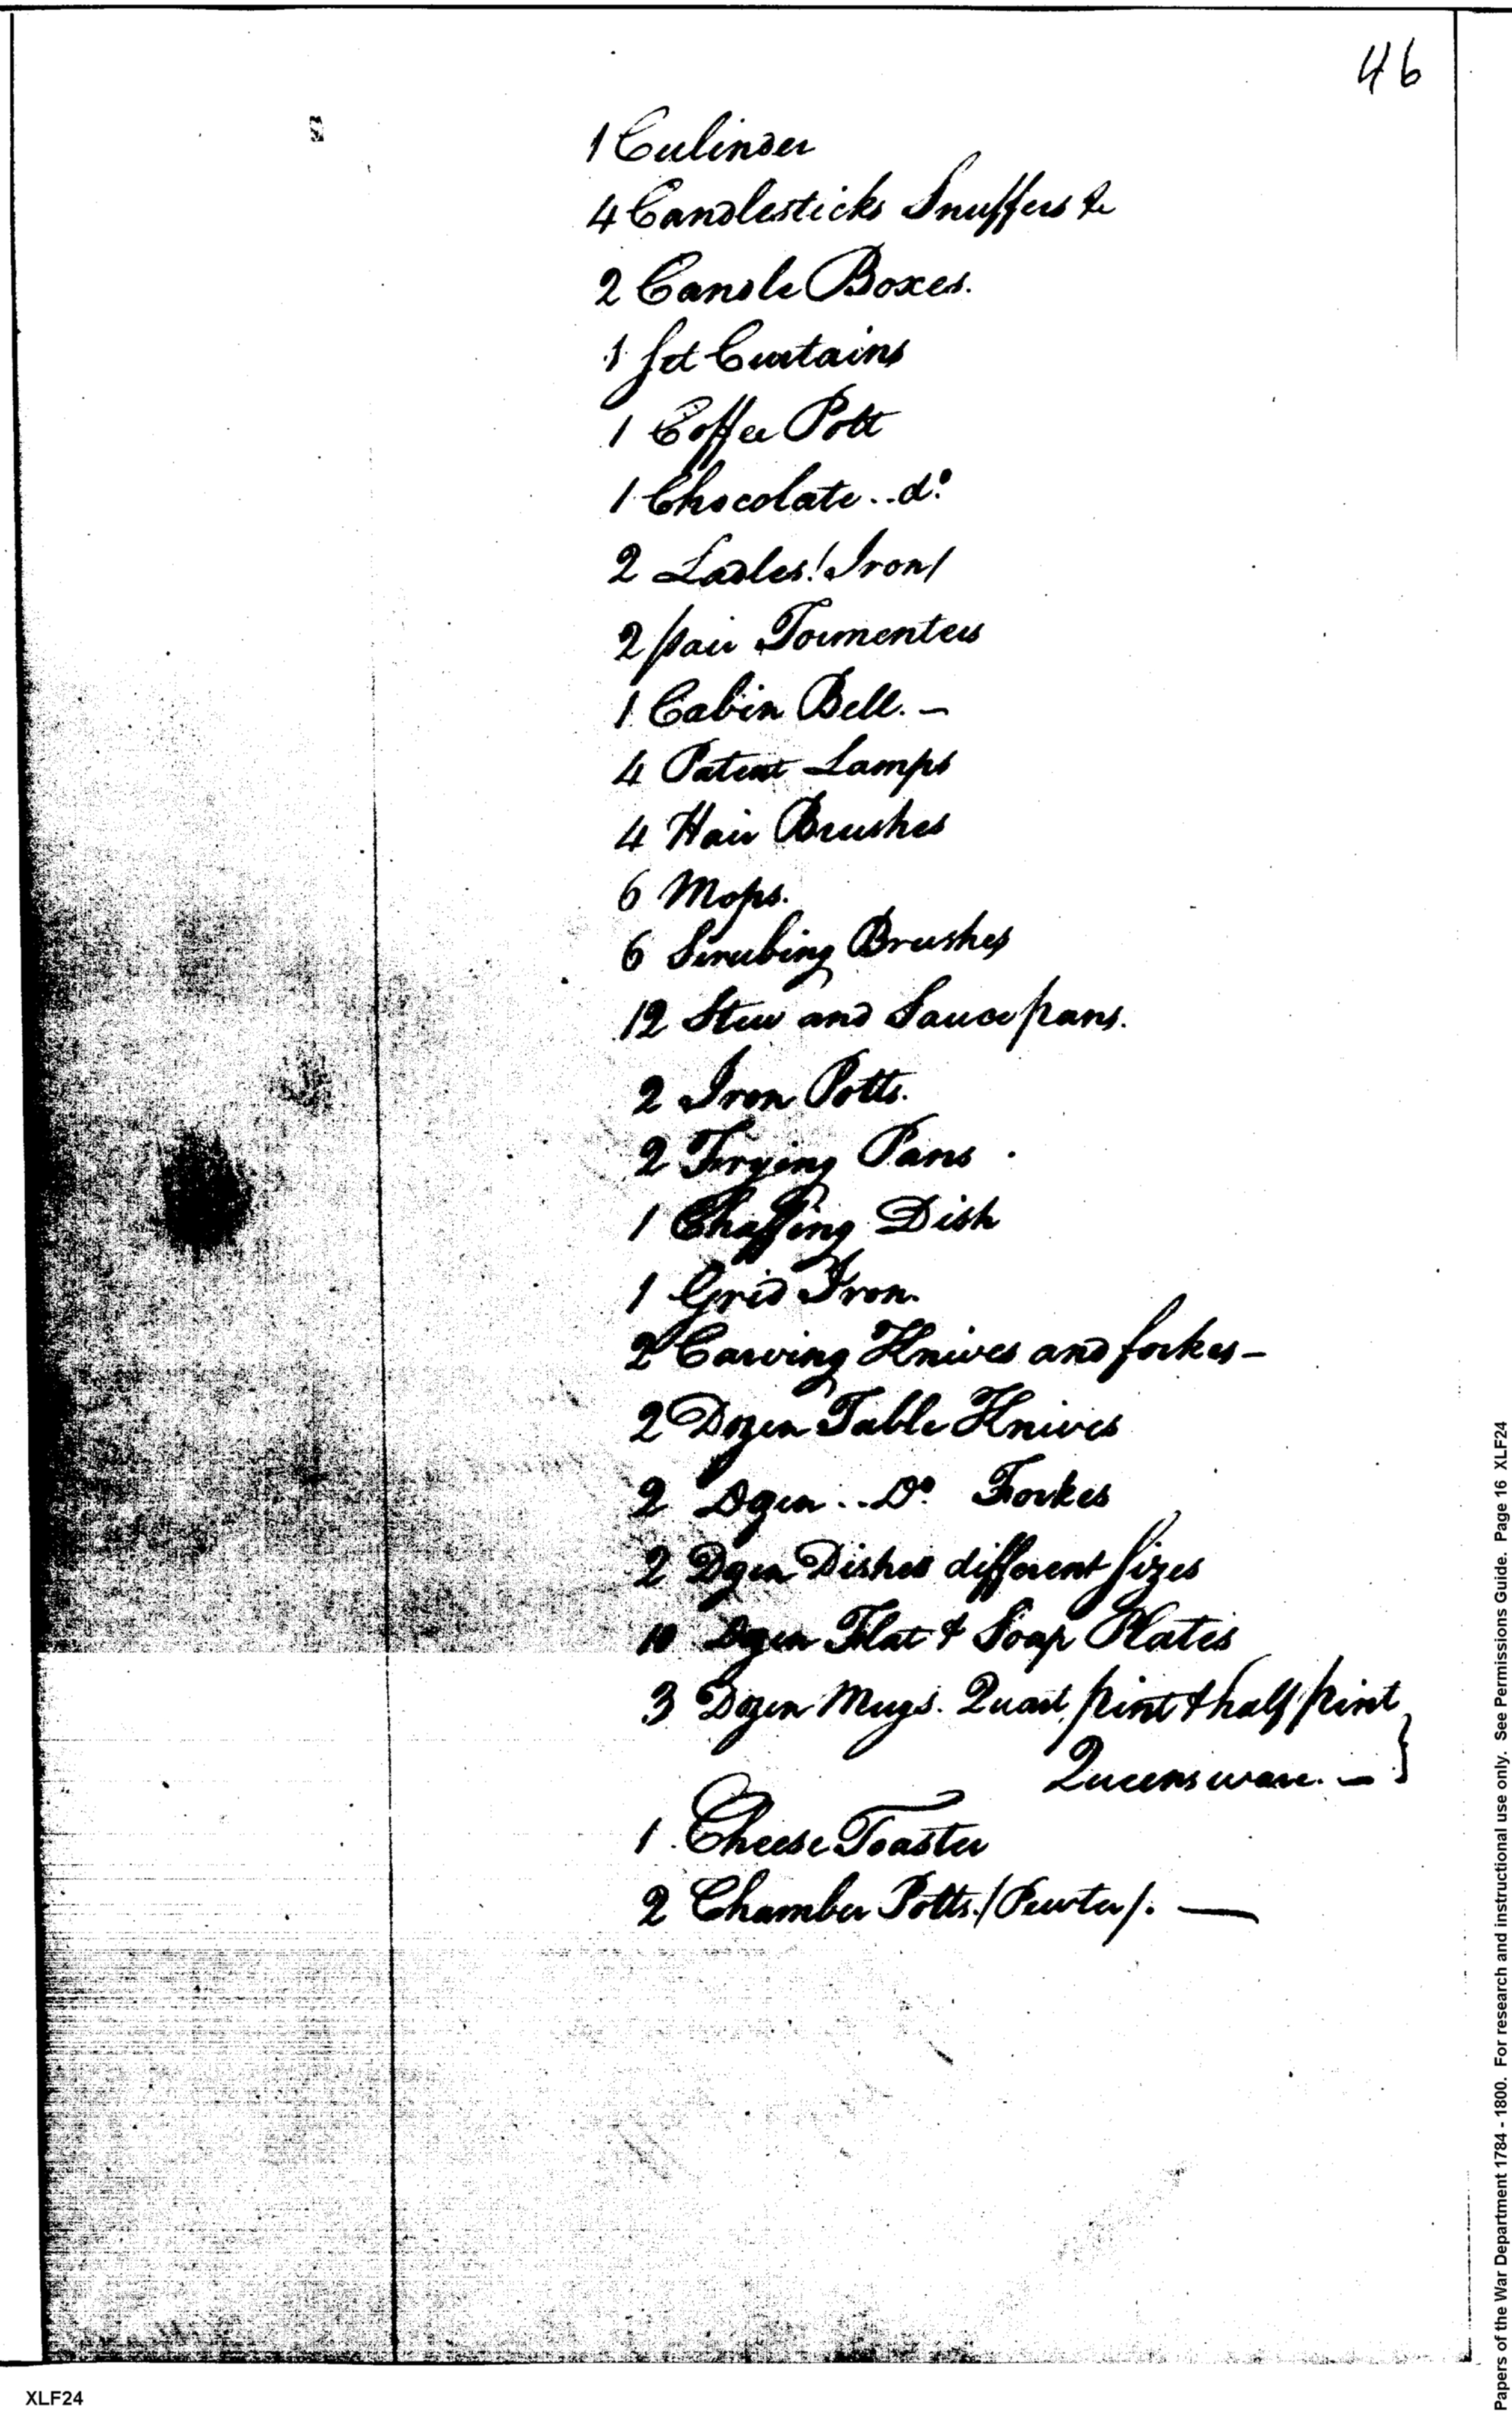 46
1 Culinder
4 Candlesticks Snuffers &c
2 Candle Boxes.
1 Set Curtains
1 Coffee Pott
1 Chocolate .. do.
2 Ladles / Iron /
2 pair Tormenters
1 Cabin Bell. —
4 Patent Lamps
4 Hair Brushes
6 Mops.
6 Scrubing Brushes
12 Stew and Sauce pans.
2 Iron Potts.
2 Frying Pans
1 Chaffing Dish
1 Grid Iron.
2 Carving Knives and forkes —
2 Dozen Table Knives
2 Dozen .. Do. Forkes
2 Dozen Dishes different Sizes
10 Dozen Flat & Soap Plates
3 Dozen Mugs. Quart, pint & half pint
Queens ware. — }
1 Cheese Toaster
2 Chamber Potts. / Pewter /. —
Papers of the War Department 1784 - 1800. For research and instructional use only. See Permissions Guide. Page 16 XLF24
XLF24